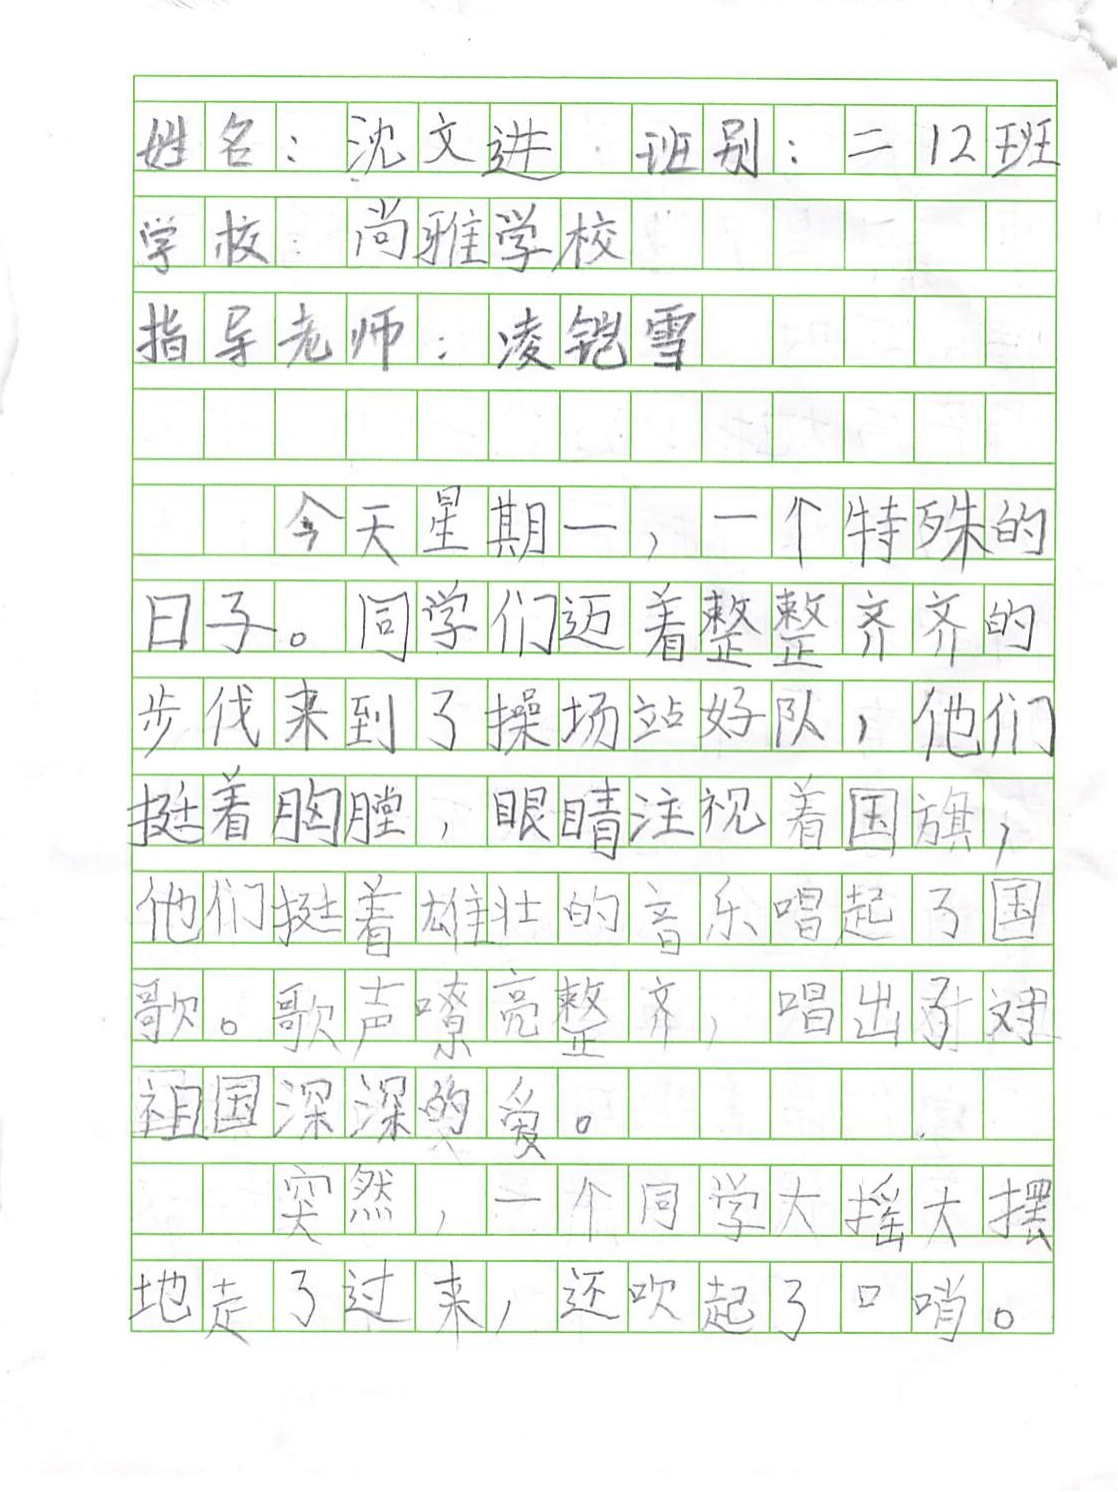 姓名：沈文进 班别：二12班
学校：尚雅学校
指导老师：凌铠雪
今天星期一，一个特殊的
日子。同学们迈着整整齐齐的
步伐来到了操场站好队，他们
挺着胸膛，眼睛注视着国旗，
他们挺着雄壮的音乐唱起了国
歌。歌声嘹亮整齐，唱出了对
祖国深深的爱。
突然，一个同学大摇大摆
地走了过来，还吹起了口哨。